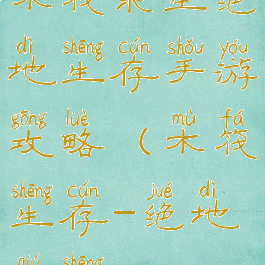 dì shēng cún shǒu yóu
地生存手游
gōng lüè mù fá
攻略（木筏
shēng cún jué dì
生存-绝地
qiú shēng